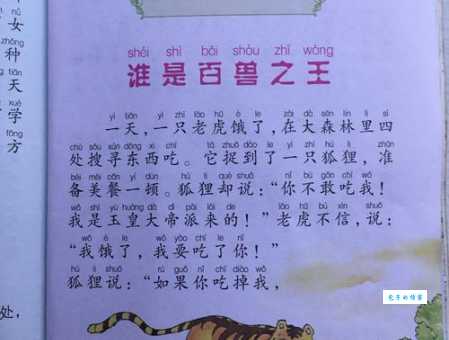 女
zhǒng
种
tiān
天
xué
学
fāng
方
处，
shéi shì bǎi shòu zhī wáng
谁是百兽之王
yì tiān yì zhī lǎo hǔ è le zài dà sēn lín lǐ sì
一天，一只老虎饿了，在大森林里四
chù sōu xún dōng xi chī tā zhuō dào le yì zhī hú li zhǔn
处搜寻东西吃。它捉到了一只狐狸，准
bèi měi cān yí dùn hú li què shuō nǐ bù gǎn chī wǒ
备美餐一顿。狐狸却说：“你不敢吃我！
wǒ shì yù huáng dà dì pài lái de lǎo hǔ bú xìn shuō
我是玉皇大帝派来的！”老虎不信，说：
wǒ è le wǒ yào chī le nǐ
“我饿了，我要吃了你！”
hú li shuō rú guǒ nǐ chī diào wǒ
狐狸说：“如果你吃掉我，